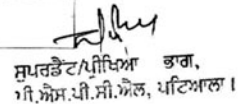 ਸੁਪਰਡੈਂਟ/ਪ੍ਰੀਖਿਆ ਭਾਗ,
ਪੀ.ਐਸ.ਪੀ.ਸੀ.ਐਲ, ਪਟਿਆਲਾ।